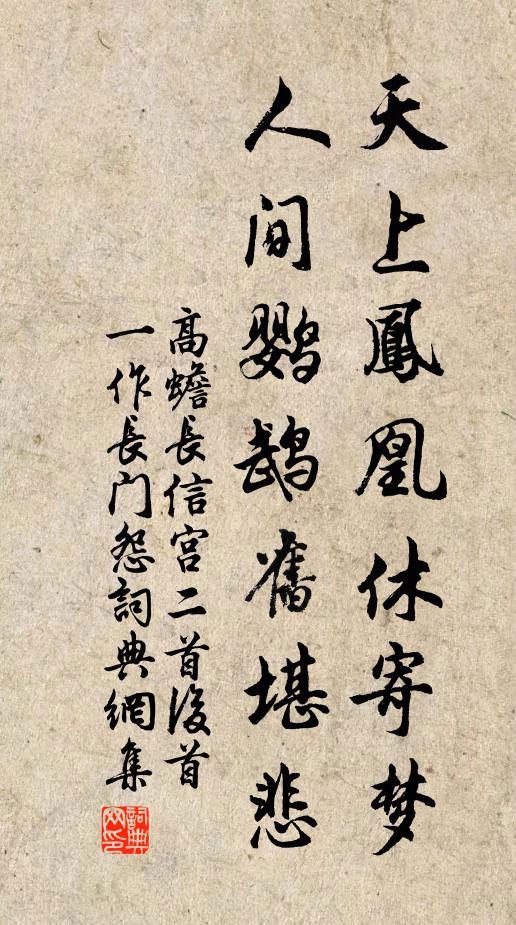 天上鳳凰休寄梦
人间鹦鹉舊堪悲
高蟾长信宫二首後首
一作长门怨詞典網集
詞典网印